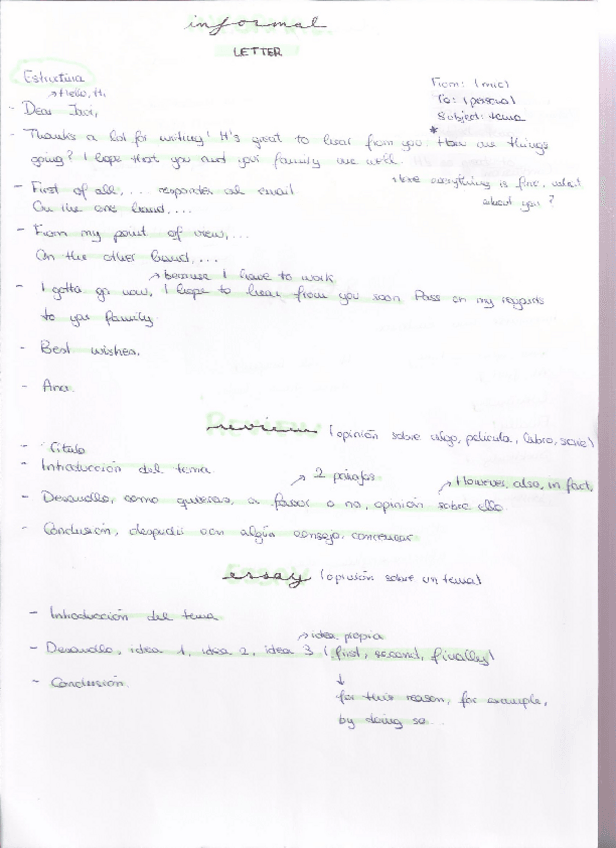 informal
LETTER
Estructura
→ Hello, Hi
From: (mio)
To: (persona)
Subject: tema
- Dear Javi,
- Thanks a lot for writing! It's great to hear from you. How are things
going? I hope that you and your family are well.
*Here everything is fine, what
about you?
- First of all,... responder al email
On the one hand,...
- From my point of view,...
On the other hand,...
→ because I have to work
- I gotta go now, I hope to hear from you soon. Pass on my regards
to your family
- Best wishes.
- Ana.
review (opinión sobre algo, película, libro, serie)
- Título
- Introducción del tema
→ 2 párrafos
→ However, also, in fact,
- Desarrollo, como quieras, a favor o no, opinión sobre ello
- Conclusión, después con algún consejo, convencer
essay (opinión sobre un tema)
- Introducción del tema
→ idea propia
- Desarrollo, idea 1, idea 2, idea 3 (first, second, finalley)
- Conclusión.
↓
for this reason, for example,
by doing so...